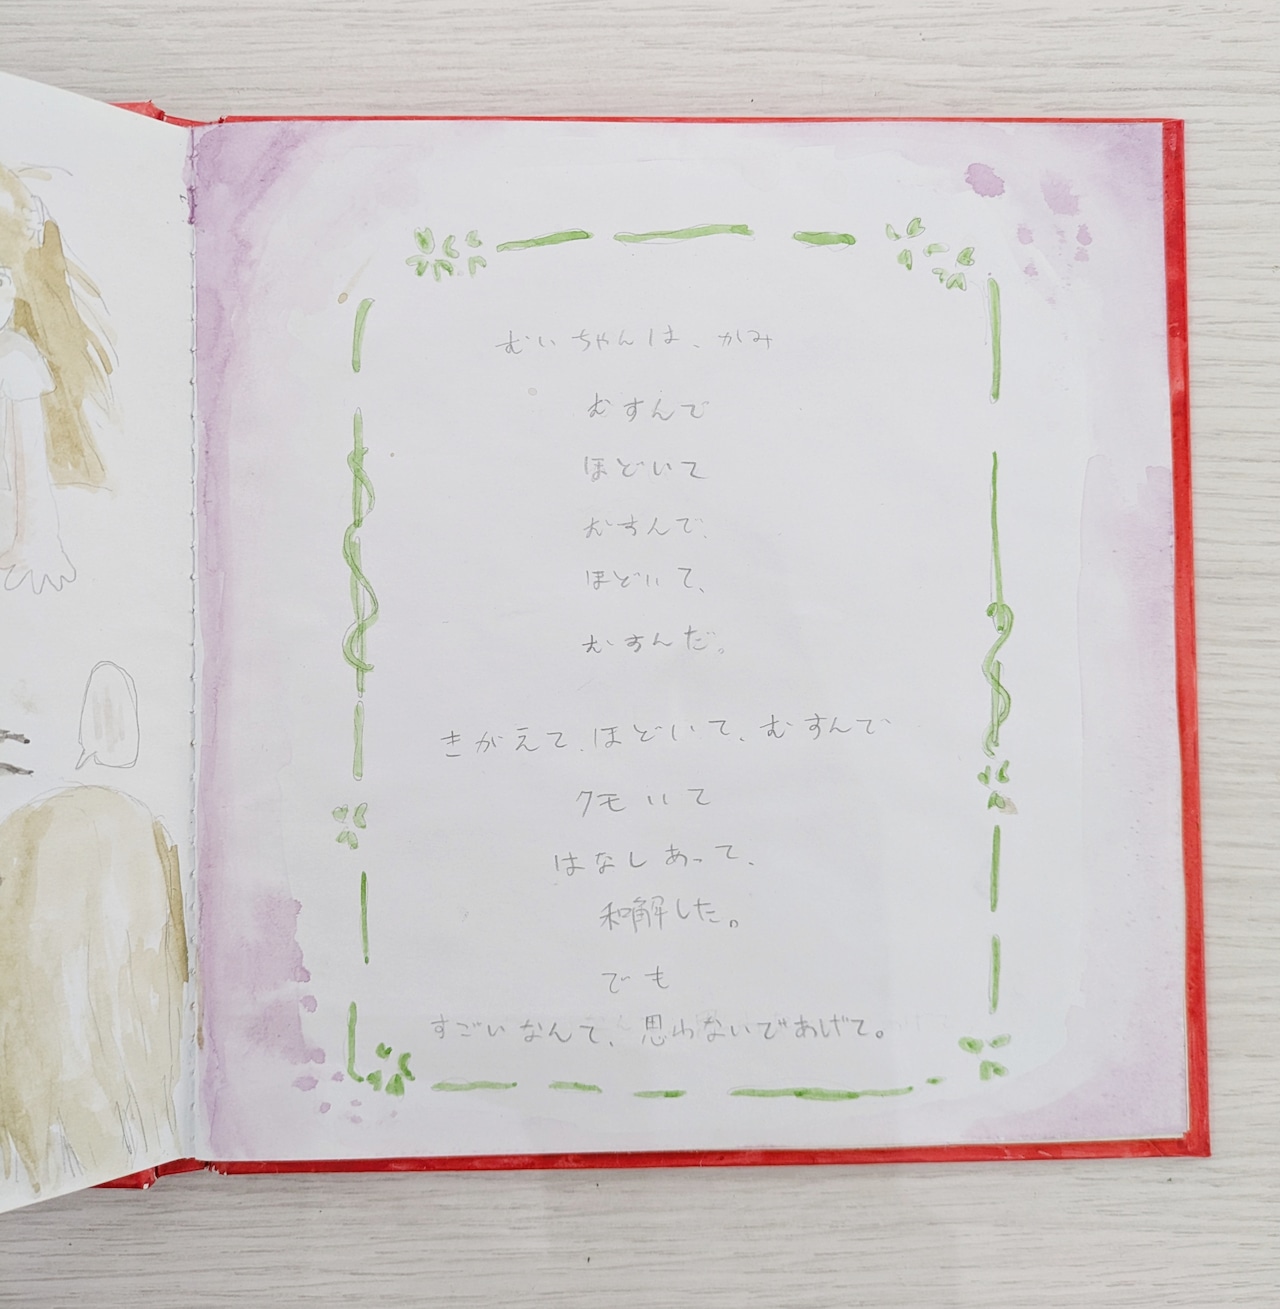 むいちゃんは、かみ
むすんで
ほどいて
むすんで、
ほどいて、
むすんだ。
きがえて、ほどいて、むすんで
クモいて
はなしあって、
和解した。
でも
すごいなんて、思わないであげて。